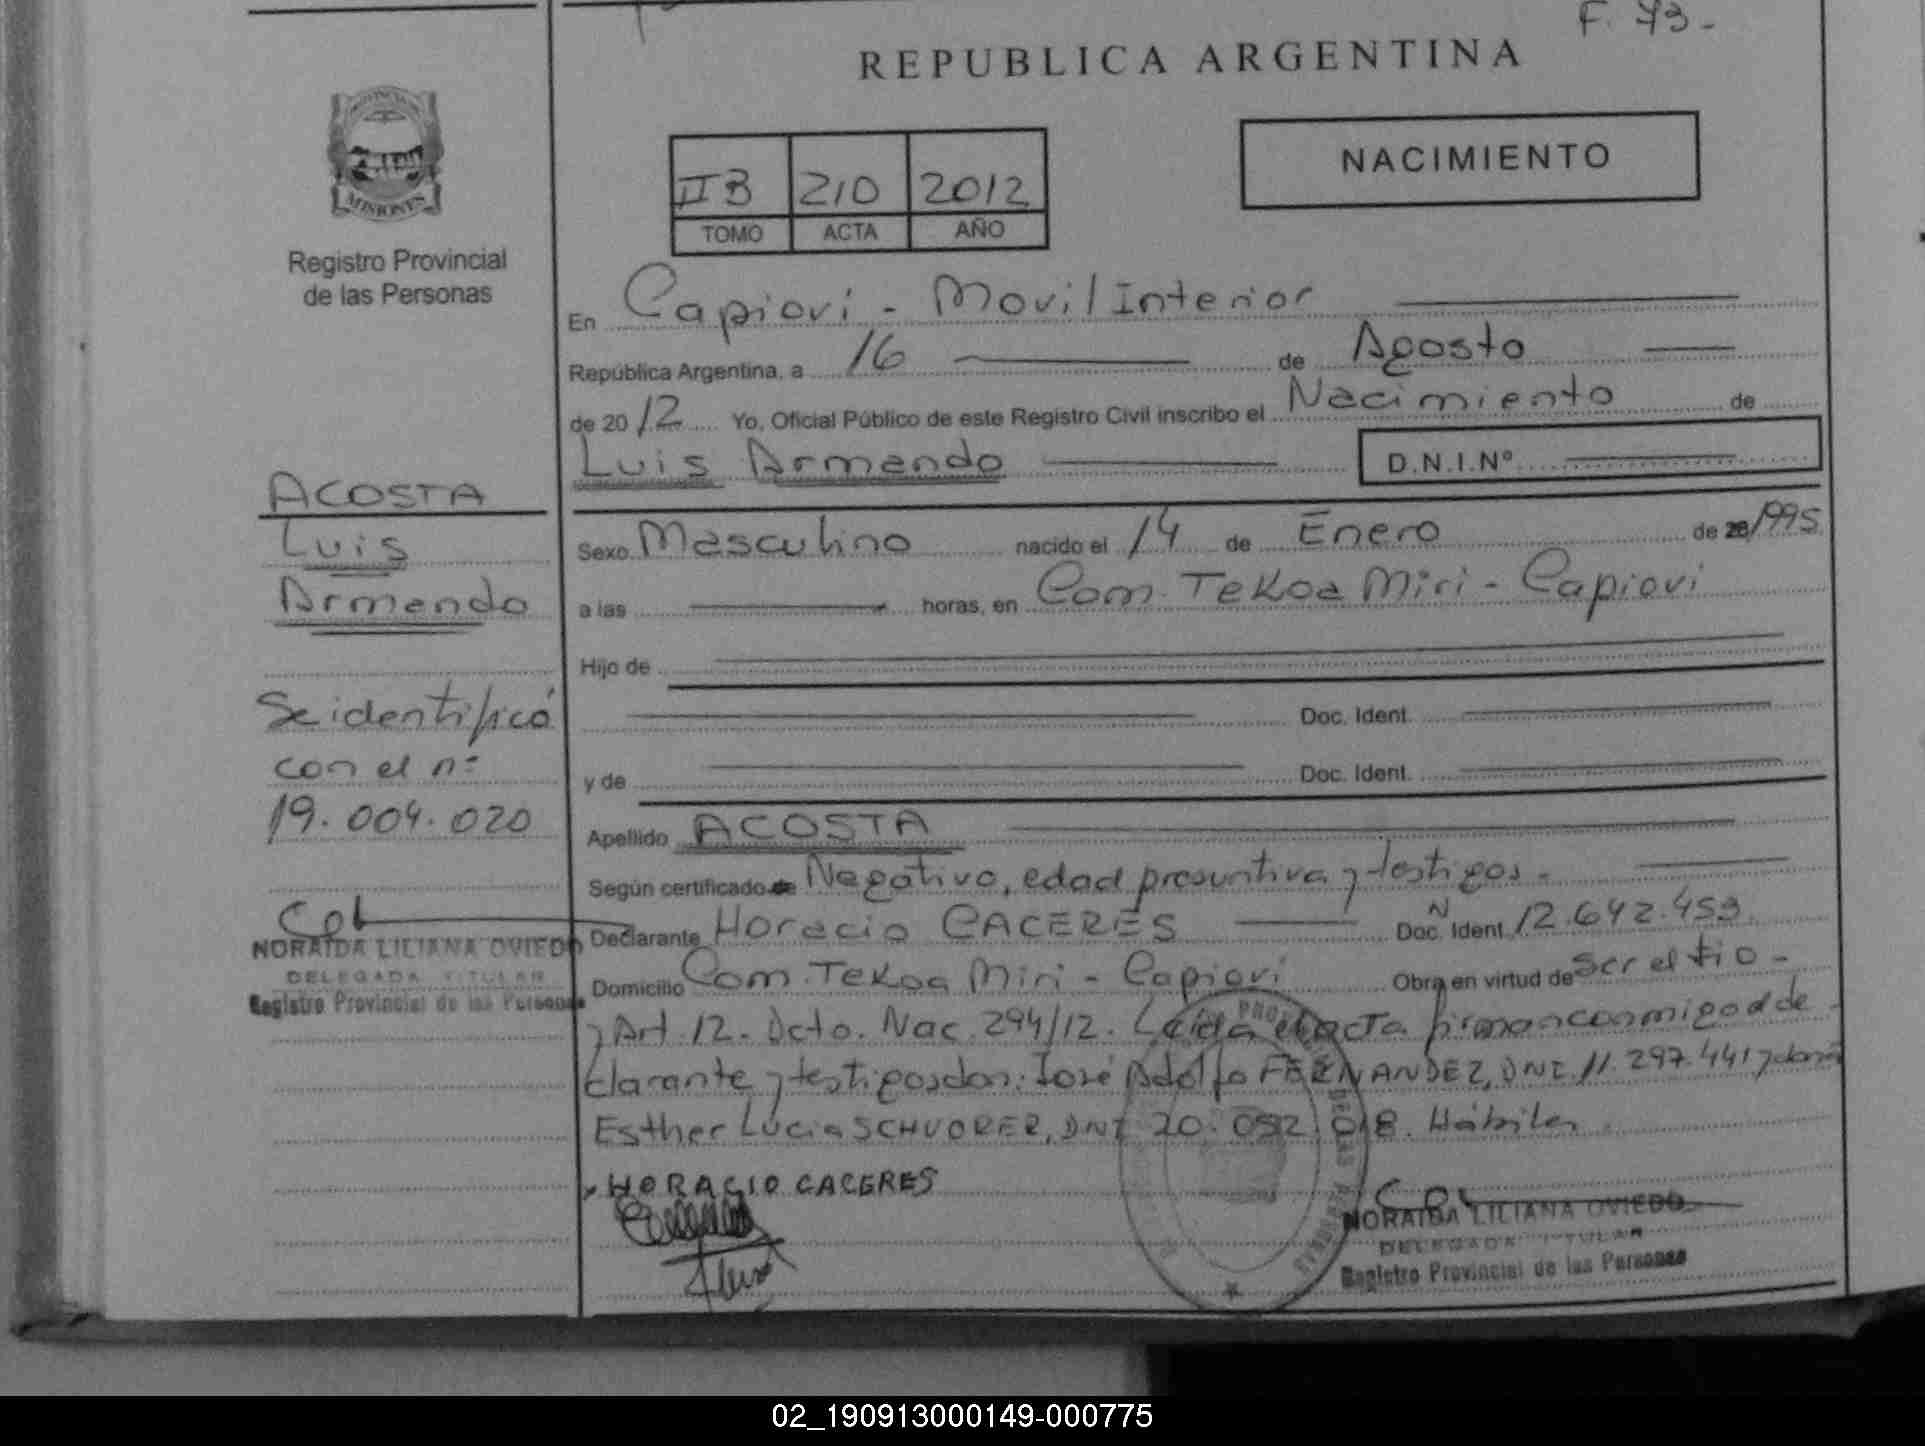 F. 73-
REPUBLICA ARGENTINA
PROVINCIA
MISIONES
Registro Provincial
de las Personas
NACIMIENTO
IIB 210 2012
TOMO ACTA AÑO
En Capiovi - Movil Interior
República Argentina, a 16 de Agosto
de 2012 Yo, Oficial Público de este Registro Civil inscribo el Nacimiento de
Luis Armando D.N.I.Nº
Sexo Masculino nacido el 14 de Enero de 1995
a las horas, en Com. Tekoa Miri - Capiovi
Hijo de
Doc. Ident.
y de Doc. Ident.
Apellido ACOSTA
Según certificado de Negativo, edad presuntiva y testigos.-
Declarante Horacio CACERES Doc. Ident. 12.642.459
Domicilio Com. Tekoa Miri - Capiovi Obra en virtud de ser el tio -
y Art. 12. Dcto. Nac. 294/12. Leida el acta firman conmigo el de-
clarante y testigos don: José Adolfo FERNANDEZ, DNI. 11.297.441 y doña
Esther Lucia SCHVORER, DNI 20.092.018. Hábiles
HORACIO CACERES
NORAIDA LILIANA OVIEDO
DELEGADA TITULAR
Registro Provincial de las Personas
ACOSTA
Luis
Armando
Se identificó
con el nº
19.004.020
NORAIDA LILIANA OVIEDO
DELEGADA TITULAR
Registro Provincial de las Personas
02_190913000149-000775